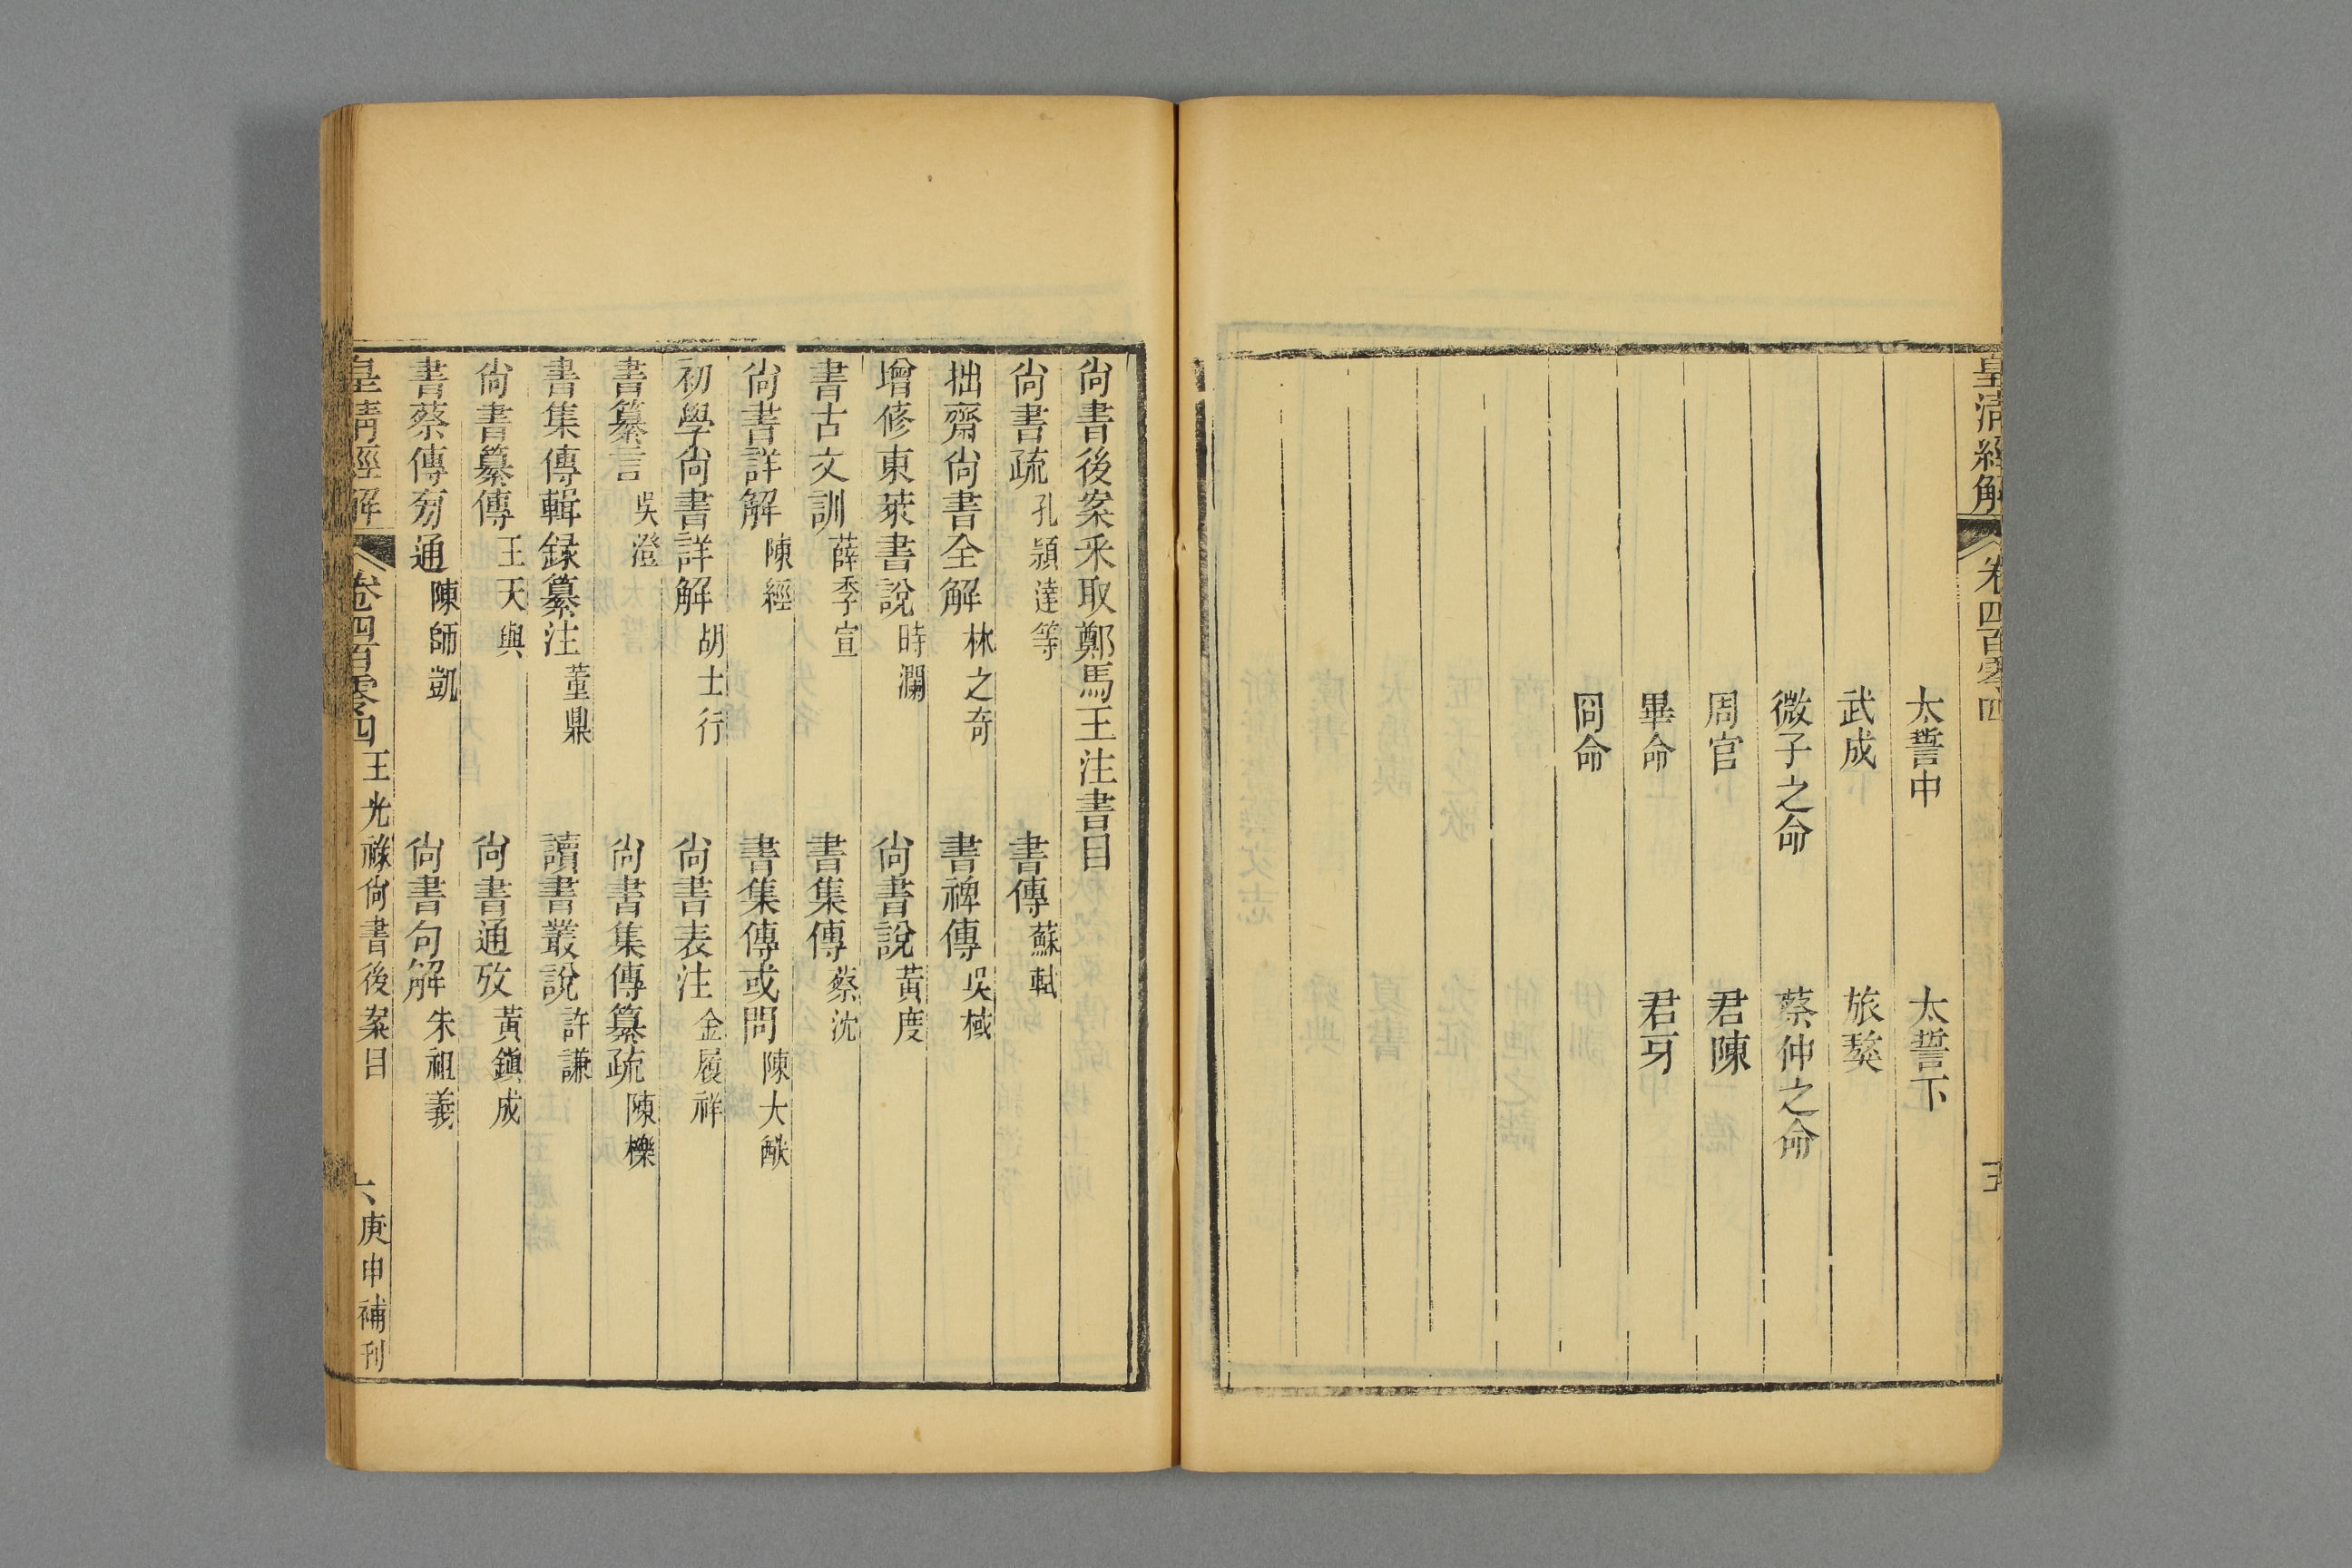 皇清經解 卷四百零四 五
太誓中 太誓下
武成 旅獒
微子之命 蔡仲之命
周官 君陳
畢命 君牙
冏命
尙書後案釆取鄭馬王注書目
尙書疏 孔穎達等 書傳 蘇軾
拙齋尙書全解 林之奇 書裨傳 吳棫
增修東萊書說 時瀾 尙書說 黃度
書古文訓 薛季宣 書集傳 蔡沈
尙書詳解 陳經 書集傳或問 陳大猷
初學尙書詳解 胡士行 尙書表注 金履祥
書纂言 吳澄 尙書集傳纂疏 陳櫟
書集傳輯録纂注 董鼎 讀書叢說 許謙
尙書纂傳 王天與 尙書通攷 黃鎭成
書蔡傳旁通 陳師凱 尙書句解 朱祖義
皇清經解 卷四百零四 王光祿尙書後案目 六 庚申補刊